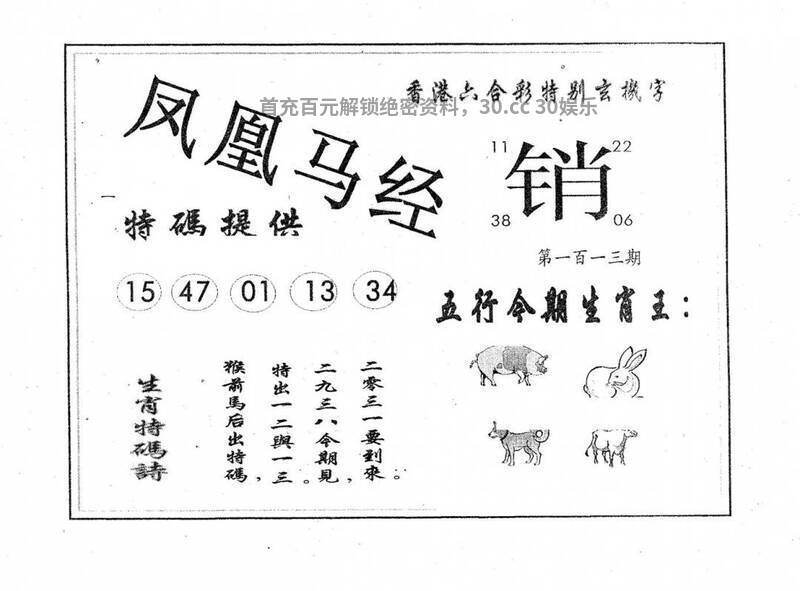 凤凰马经
香港六合彩特别玄機字
首充百元解锁绝密资料，30.cc 30娱乐
11 销 22
38 06
特碼提供
第一百一三期
15 47 01 13 34
五行今期生肖王：
生肖特碼詩
猴前馬后出特碼，
特出一二與一三。
二九三八今期見，
二零三一要到來。